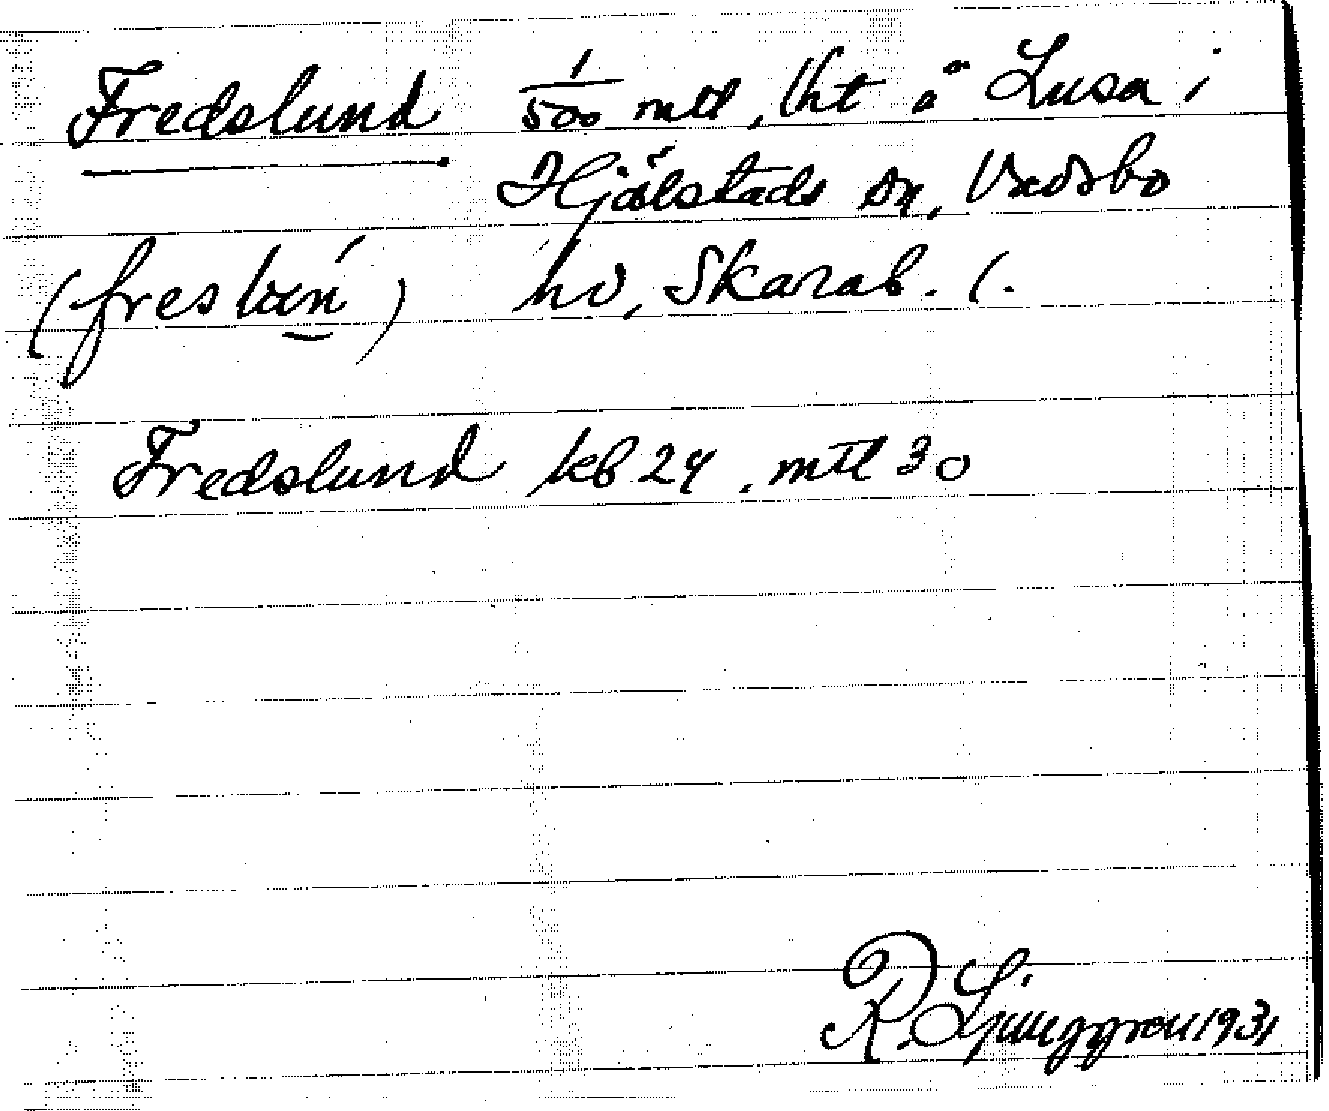 Fredslund 1/500 mtl, lht å Lusa i
Hjälstads sn, Vadsbo
(fres lun) hd, Skarab. l.
Fredslund kb 24, mtl 30
R. Ljunggren 1931